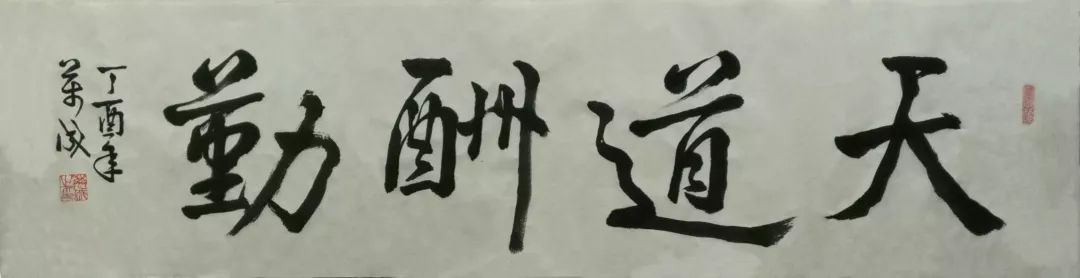 天道酬勤
丁酉年
万成